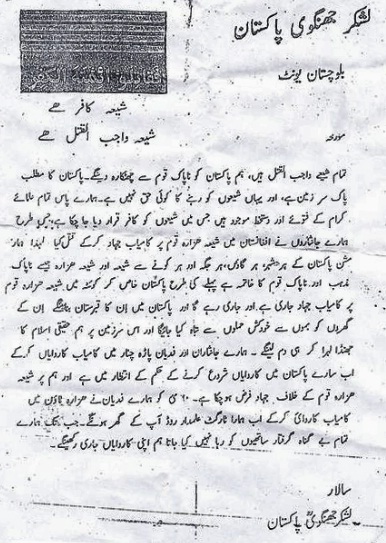 لشکر جھنگوی پاکستان
بلوچستان یونٹ
شیعہ کافر ھے
شیعہ واجب القتل ھے
مورخہ
تمام شیعے واجب القتل ہیں، ہم پاکستان کو ناپاک قوم سے چھٹکارہ دینگے۔ پاکستان کا مطلب
پاک سر زمین ہے، اور یہاں شیعوں کو رہنے کا کوئی حق نہیں ہے۔ ہمارے پاس تمام علمائے
کرام کے فتوئے اور دستخط موجود ہیں جس میں شیعوں کو کافر قرار دیا جا چکا ہے، جس طرح
ہمارے جانثاروں نے افغانستان میں شیعہ ہزارہ قوم پر کامیاب جہاد کرکے قتل کیا لہذا ہمارا
مشن پاکستان کے ہر شہر، ہر گاؤں، ہر جگہ اور ہر کونے سے شیعہ اور شیعہ ہزارہ جیسے ناپاک
مذہب اور ناپاک قوم کا خاتمہ ہے پہلے کی طرح پاکستان خاص کر کوئٹہ میں شیعہ ہزارہ قوم
پر کامیاب جہاد جاری ہے۔ اور جاری رہے گا اور پاکستان میں ان کا قبرستان بنائینگے ان کے
گھروں کو بموں سے خودکش حملوں سے تباہ کیا جائیگا اور اس سرزمین پر ہم حقیقی اسلام کا
جھنڈا لہرا کر ہی دم لینگے۔ ہمارے جانثاران اور فدیان پاڑہ چنار میں کامیاب کاروایاں کرکے
اب سارے پاکستان میں کاروایاں شروع کرنے کے حکم کے انتظار میں ہے اور ہم پر شیعہ
ہزارہ قوم کے خلاف جہاد فرض ہوچکا ہے۔ ہی کو ہمارے فدیان نے ہزارہ ٹاؤن میں
کامیاب کاروائی کرکے اب ہمارا ٹارگٹ علمدار روڈ آپ کے گھر ہونگے۔ جب تک ہمارے
تمام بے گناہ گرفتار ساتھیوں کو رہا نہیں کیا جاتا ہم اپنی کاروایاں جاری رکھینگے۔
سالار
لشکر جھنگوی پاکستان